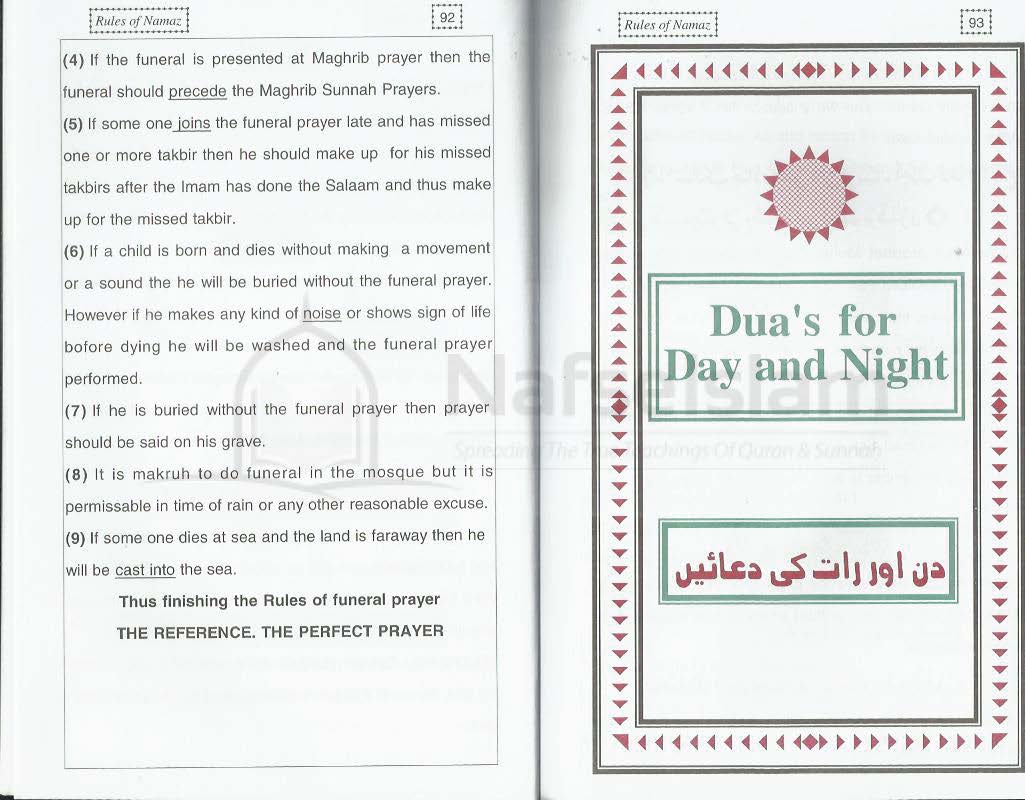 Rules of Namaz
92
(4) If the funeral is presented at Maghrib prayer then the
funeral should precede the Maghrib Sunnah Prayers.
(5) If some one joins the funeral prayer late and has missed
one or more takbir then he should make up for his missed
takbirs after the Imam has done the Salaam and thus make
up for the missed takbir.
(6) If a child is born and dies without making a movement
or a sound the he will be buried without the funeral prayer.
However if he makes any kind of noise or shows sign of life
before dying he will be washed and the funeral prayer
performed.
(7) If he is buried without the funeral prayer then prayer
should be said on his grave.
(8) It is makruh to do funeral in the mosque but it is
permissable in time of rain or any other reasonable excuse.
(9) If some one dies at sea and the land is faraway then he
will be cast into the sea.
Thus finishing the Rules of funeral prayer
THE REFERENCE. THE PERFECT PRAYER
Rules of Namaz
93
Dua's for
Day and Night
دن اور رات کی دعائیں
NafseIslam
Spreading The True Teachings Of Quran & Sunnah